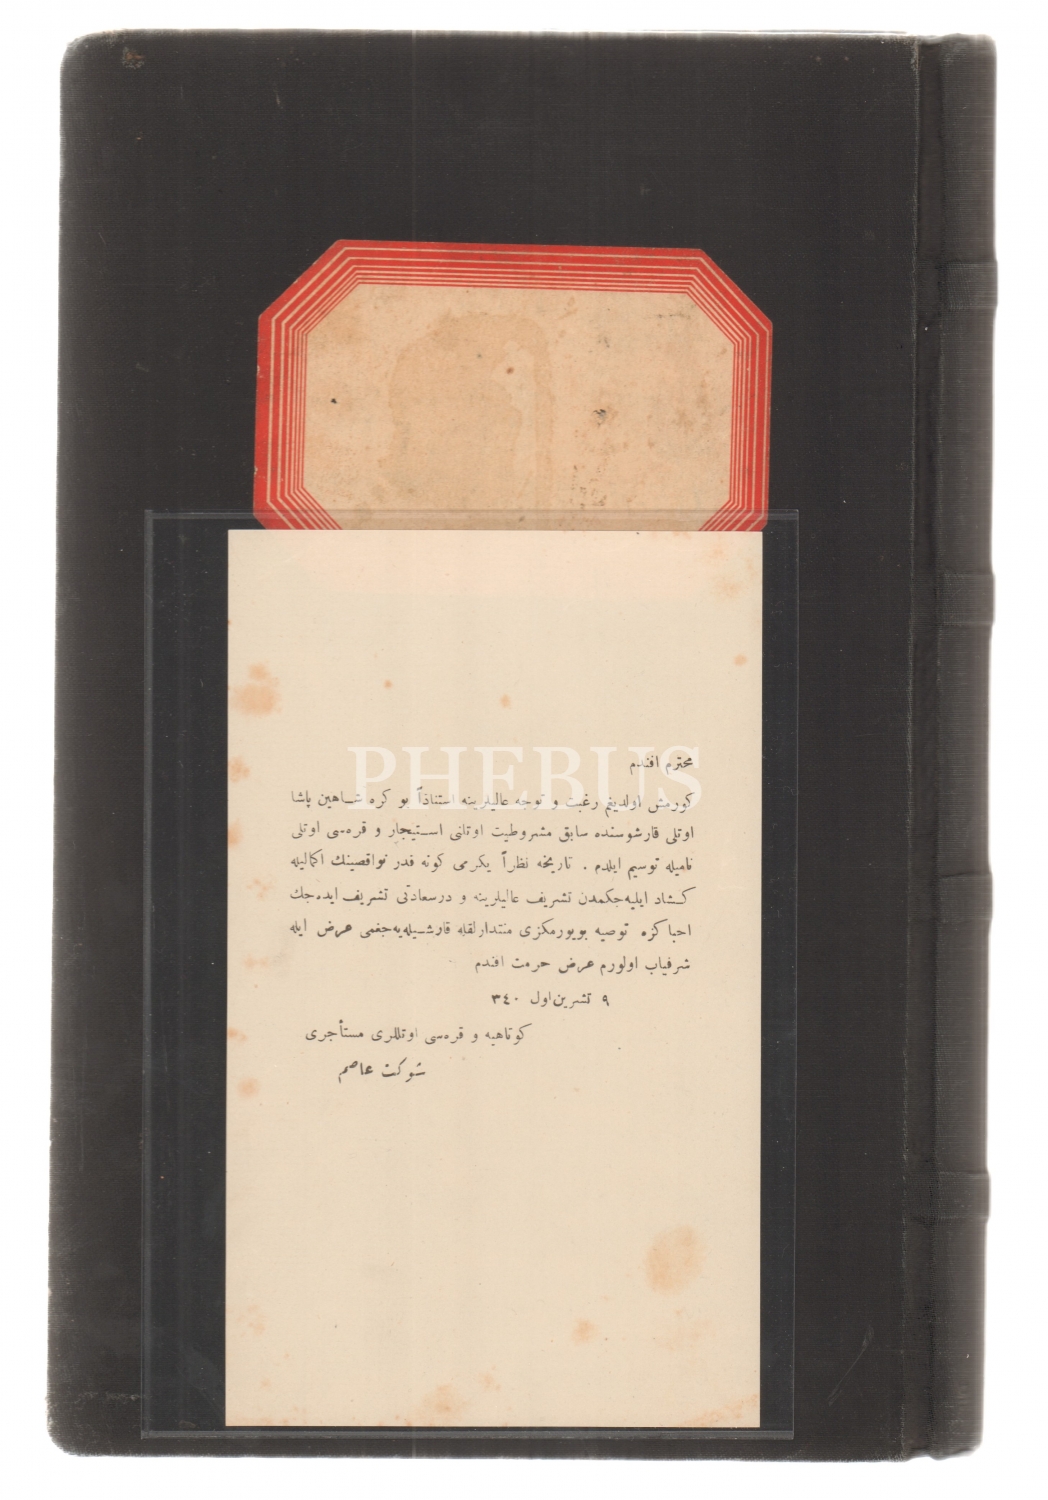 PHEBUS
محترم افندم
كورمش اولديغم رغبت و توجه عاليلرينه استناداً بو كره شاهين پاشا
اوتلى قارشوسنده سابق مشروطيت اوتلنى استيجار و قره‌سى اوتلى
ناميله توسيم ايلدم . تاريخه نظراً يكرمى كونه قدر نواقصينك اكماليله
كشاد ايليه‌جكمدن تشريف عاليلرينه و درسعادتى تشريف ايده‌جك
احباكزه توصيه بويورمكزى منتدارلقله قارشيليه‌يه‌جغمى عرض ايله
شرفياب اولورم عرض حرمت افندم
٩ تشرين‌اول ٣٤٠
كوتاهيه و قره‌سى اوتللرى مستأجرى
شوكت عاصم